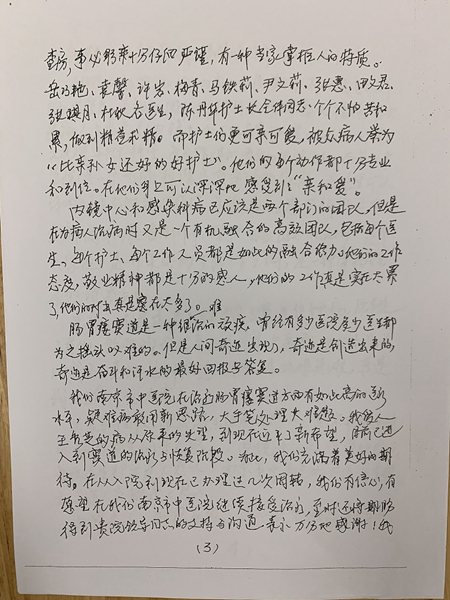 查房,事必躬亲十分仔细严谨,有一种当家掌柜人的特质。
岳乃艳、袁馨、许岩、梅青、马铁莉、尹文莉、张惠、田文君、
张琪月、杜秋启医生,陈丹华护士长全体同志个个不怕苦和
累,做到精益求精。而护士们更可亲可爱,被众病人誉为
“比亲孙女还好的好护士”。他们的每个动作都十分专业
和到位。在他们身上可以深深地感受到:“亲和爱”。
内镜中心和感染科病区应该是两个部门的团队,但是
在为病人治病时又是一个有机融合的高效团队,包括每个医
生、每个护士、每个工作人员都是如此的融合给力。他们的工作
态度,敬业精神都是十分的感人,他们的工作真是实在太累
了,他们的付出真是实在太多了。难
肠胃瘘窦道是一种很难治的顽疾,曾经有多少医院多少医生都
为之摇头叹难的。但是人间奇迹出现了,奇迹是创造出来的,
奇迹是奋斗和汗水的最好回报与答案。
我们南京市中医院在治疗肠胃瘘窦道方面有如此高的
水平,疑难病敢闯新思路,大手笔处理大难题。我病人
的病从原来的失望,到现在迎来了新希望,目前已进
入到窦道的治疗与恢复阶段。为此,我们充满着美好的期
待。在从入院到现在已办理过几次周转,我们有信心,有
愿望在我们南京市中医院继续接受治疗,至时还将期盼
得到贵院领导同志的支持与沟通,表示万分地感谢!我
(3)